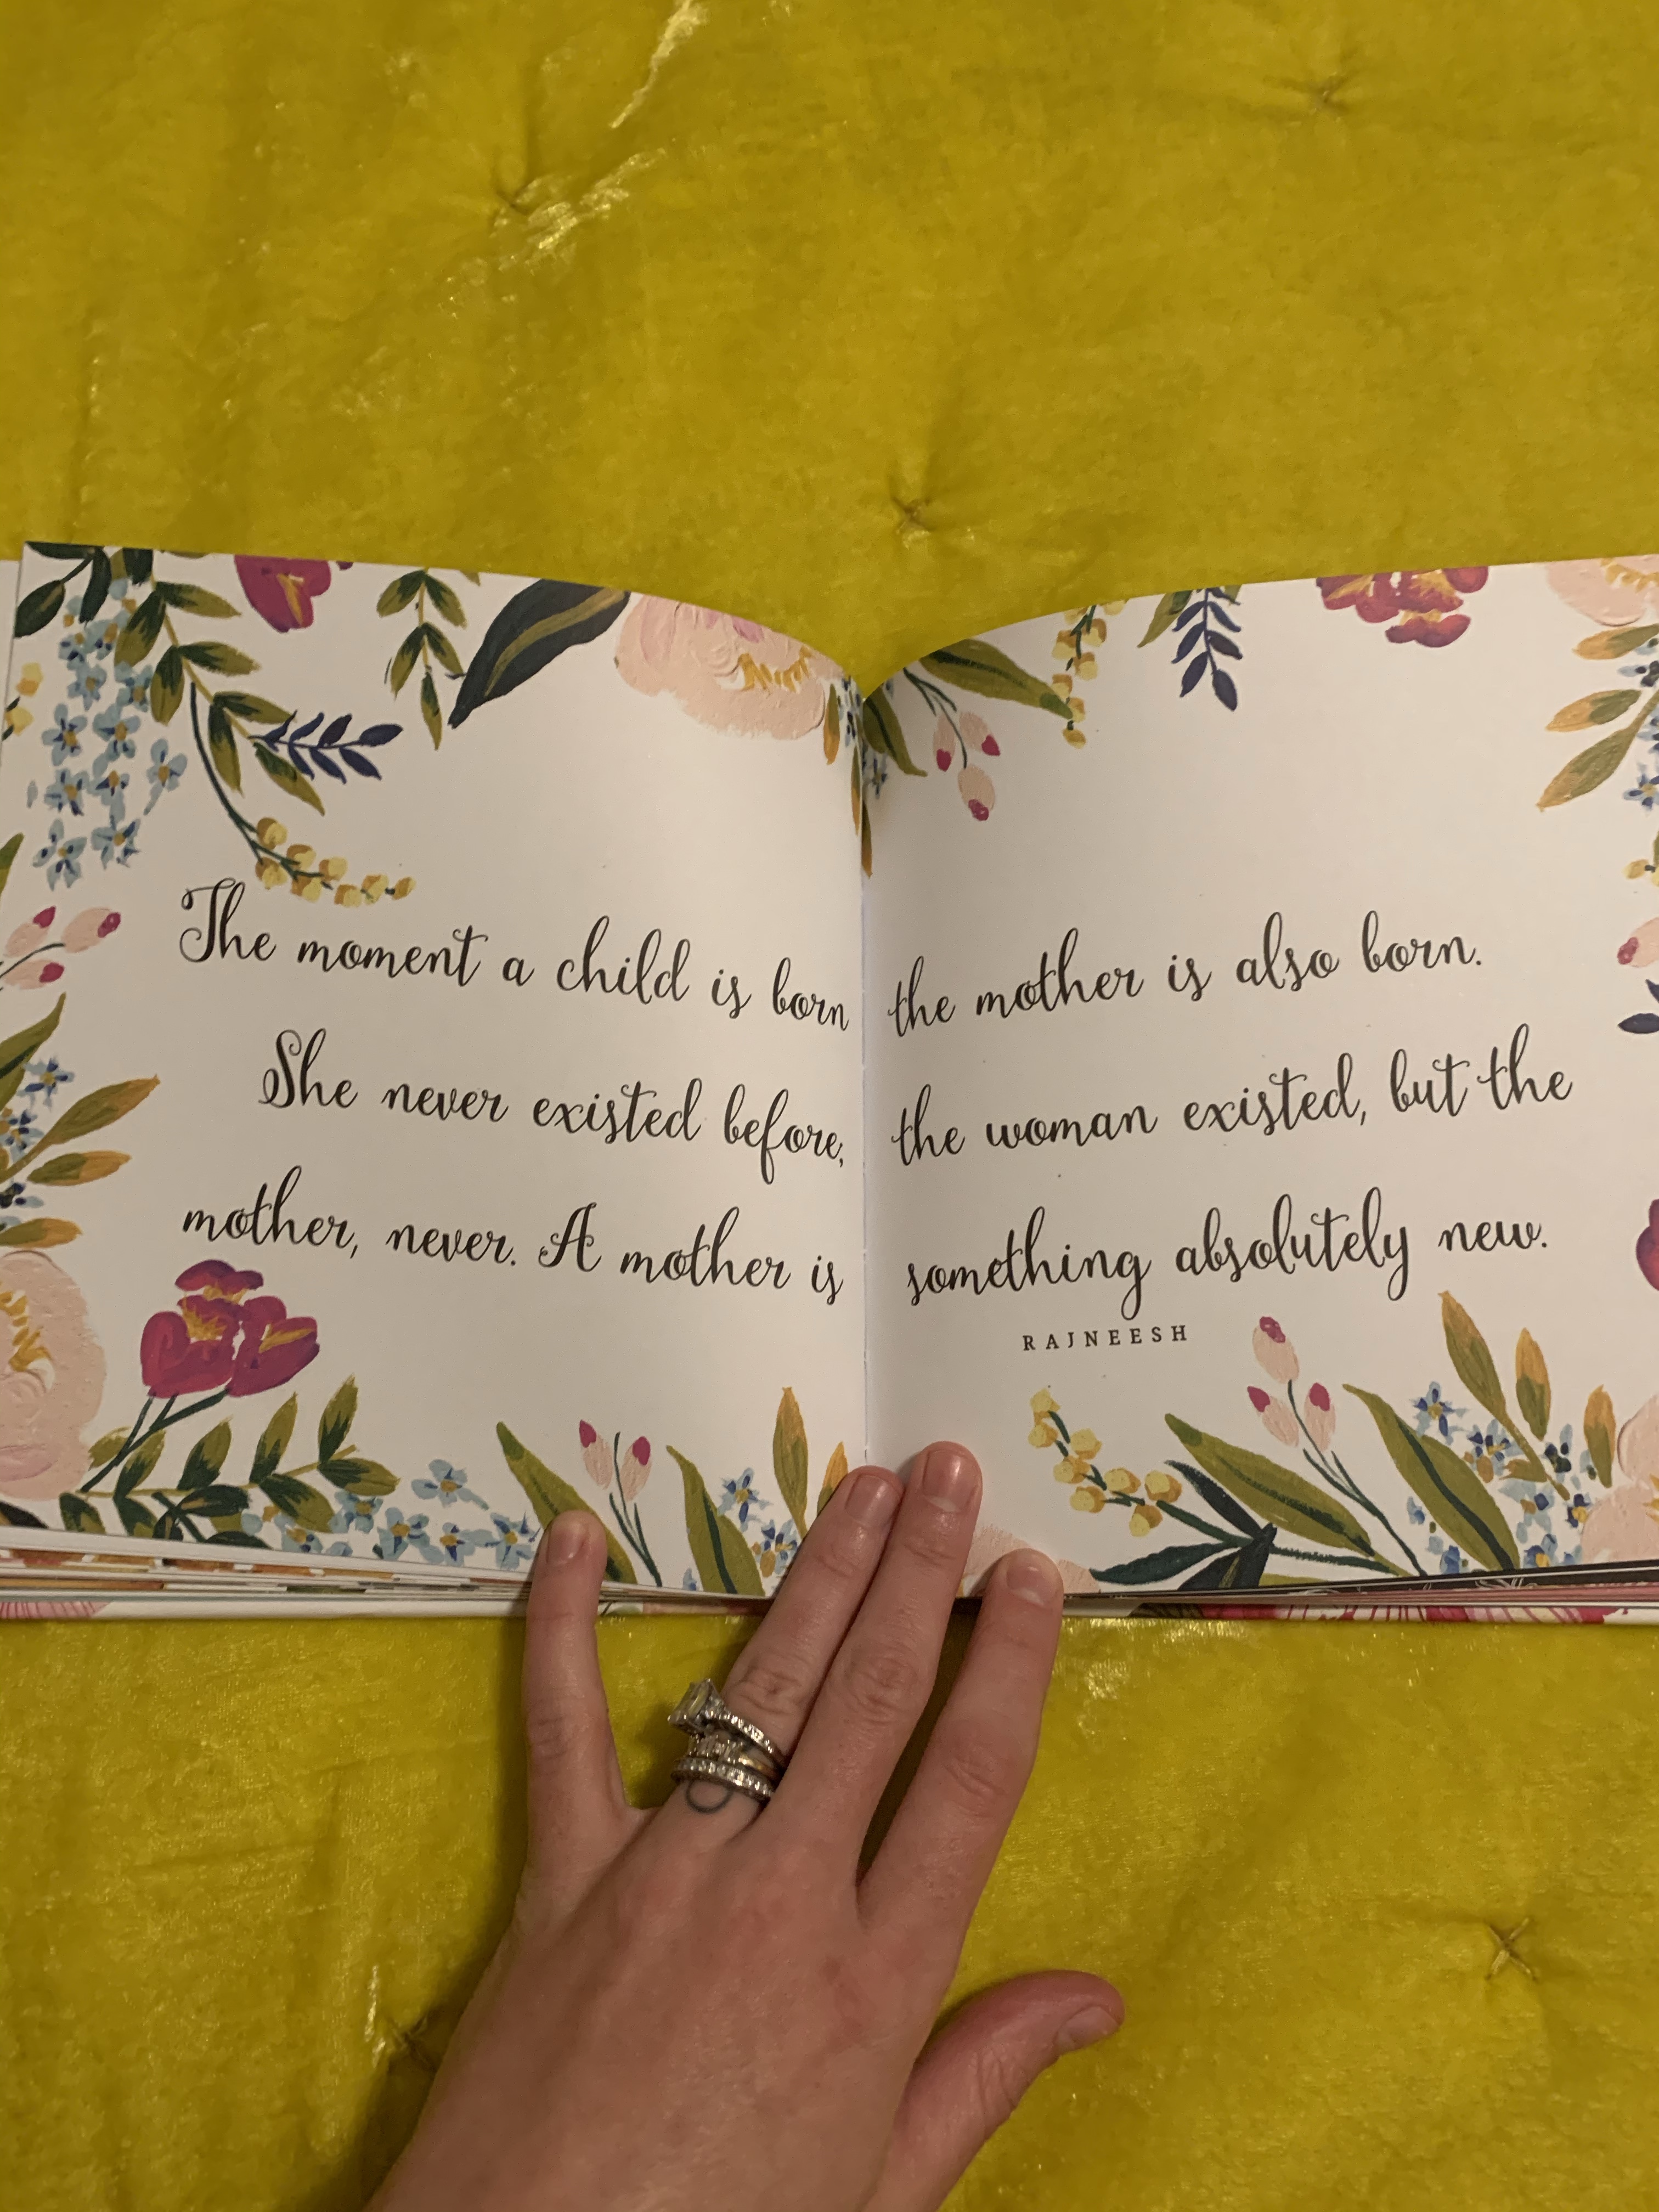 The moment a child is born the mother is also born.
She never existed before, the woman existed, but the
mother, never. A mother is something absolutely new.
RAJNEESH